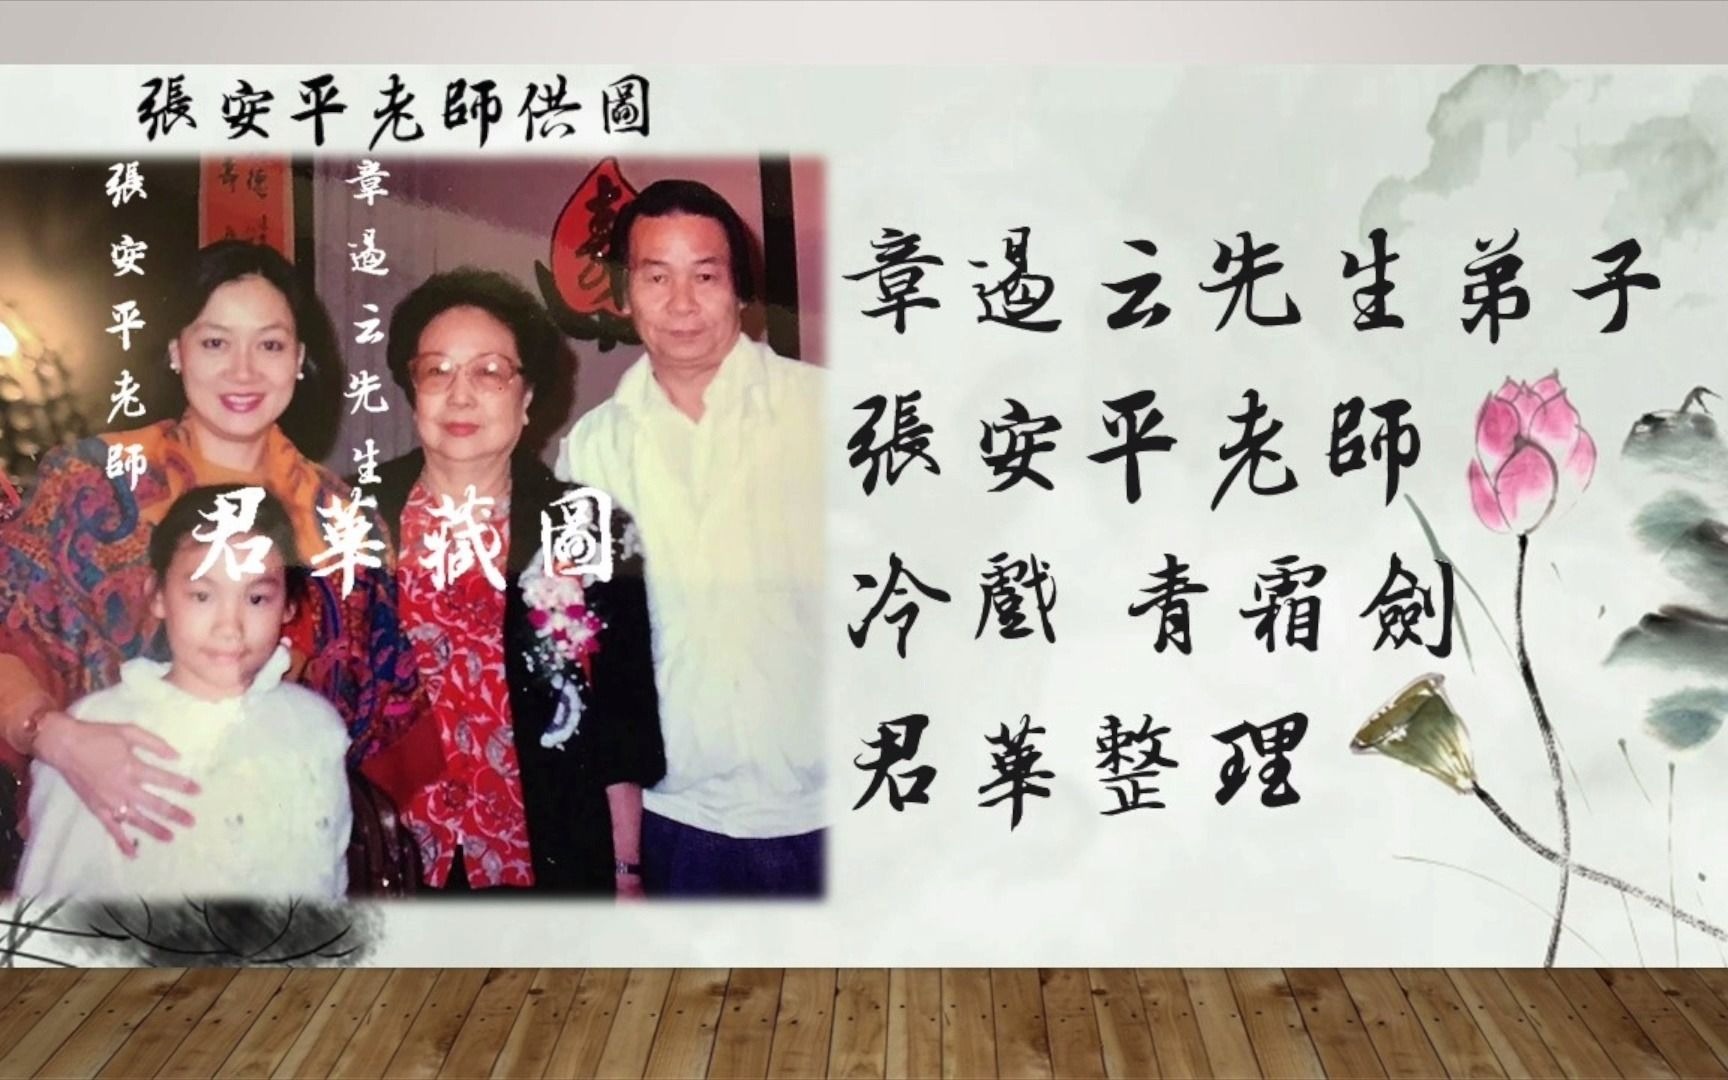 張安平老師供圖
張安平老師
章遏云先生
君華藏圖
章遏云先生弟子
張安平老師
冷戲 青霜劍
君華整理